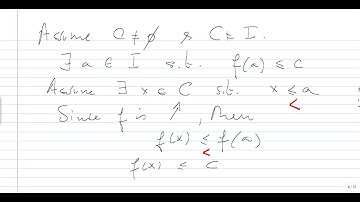 Assume C ≠ ∅ & C ≠ I.
∃ a ∈ I s.t. f(a) ≤ c
Assume ∃ x ∈ C s.t. x ≤ a
<
Since f is ↗, then
f(x) ≤ f(a)
<
f(x) ≤ c